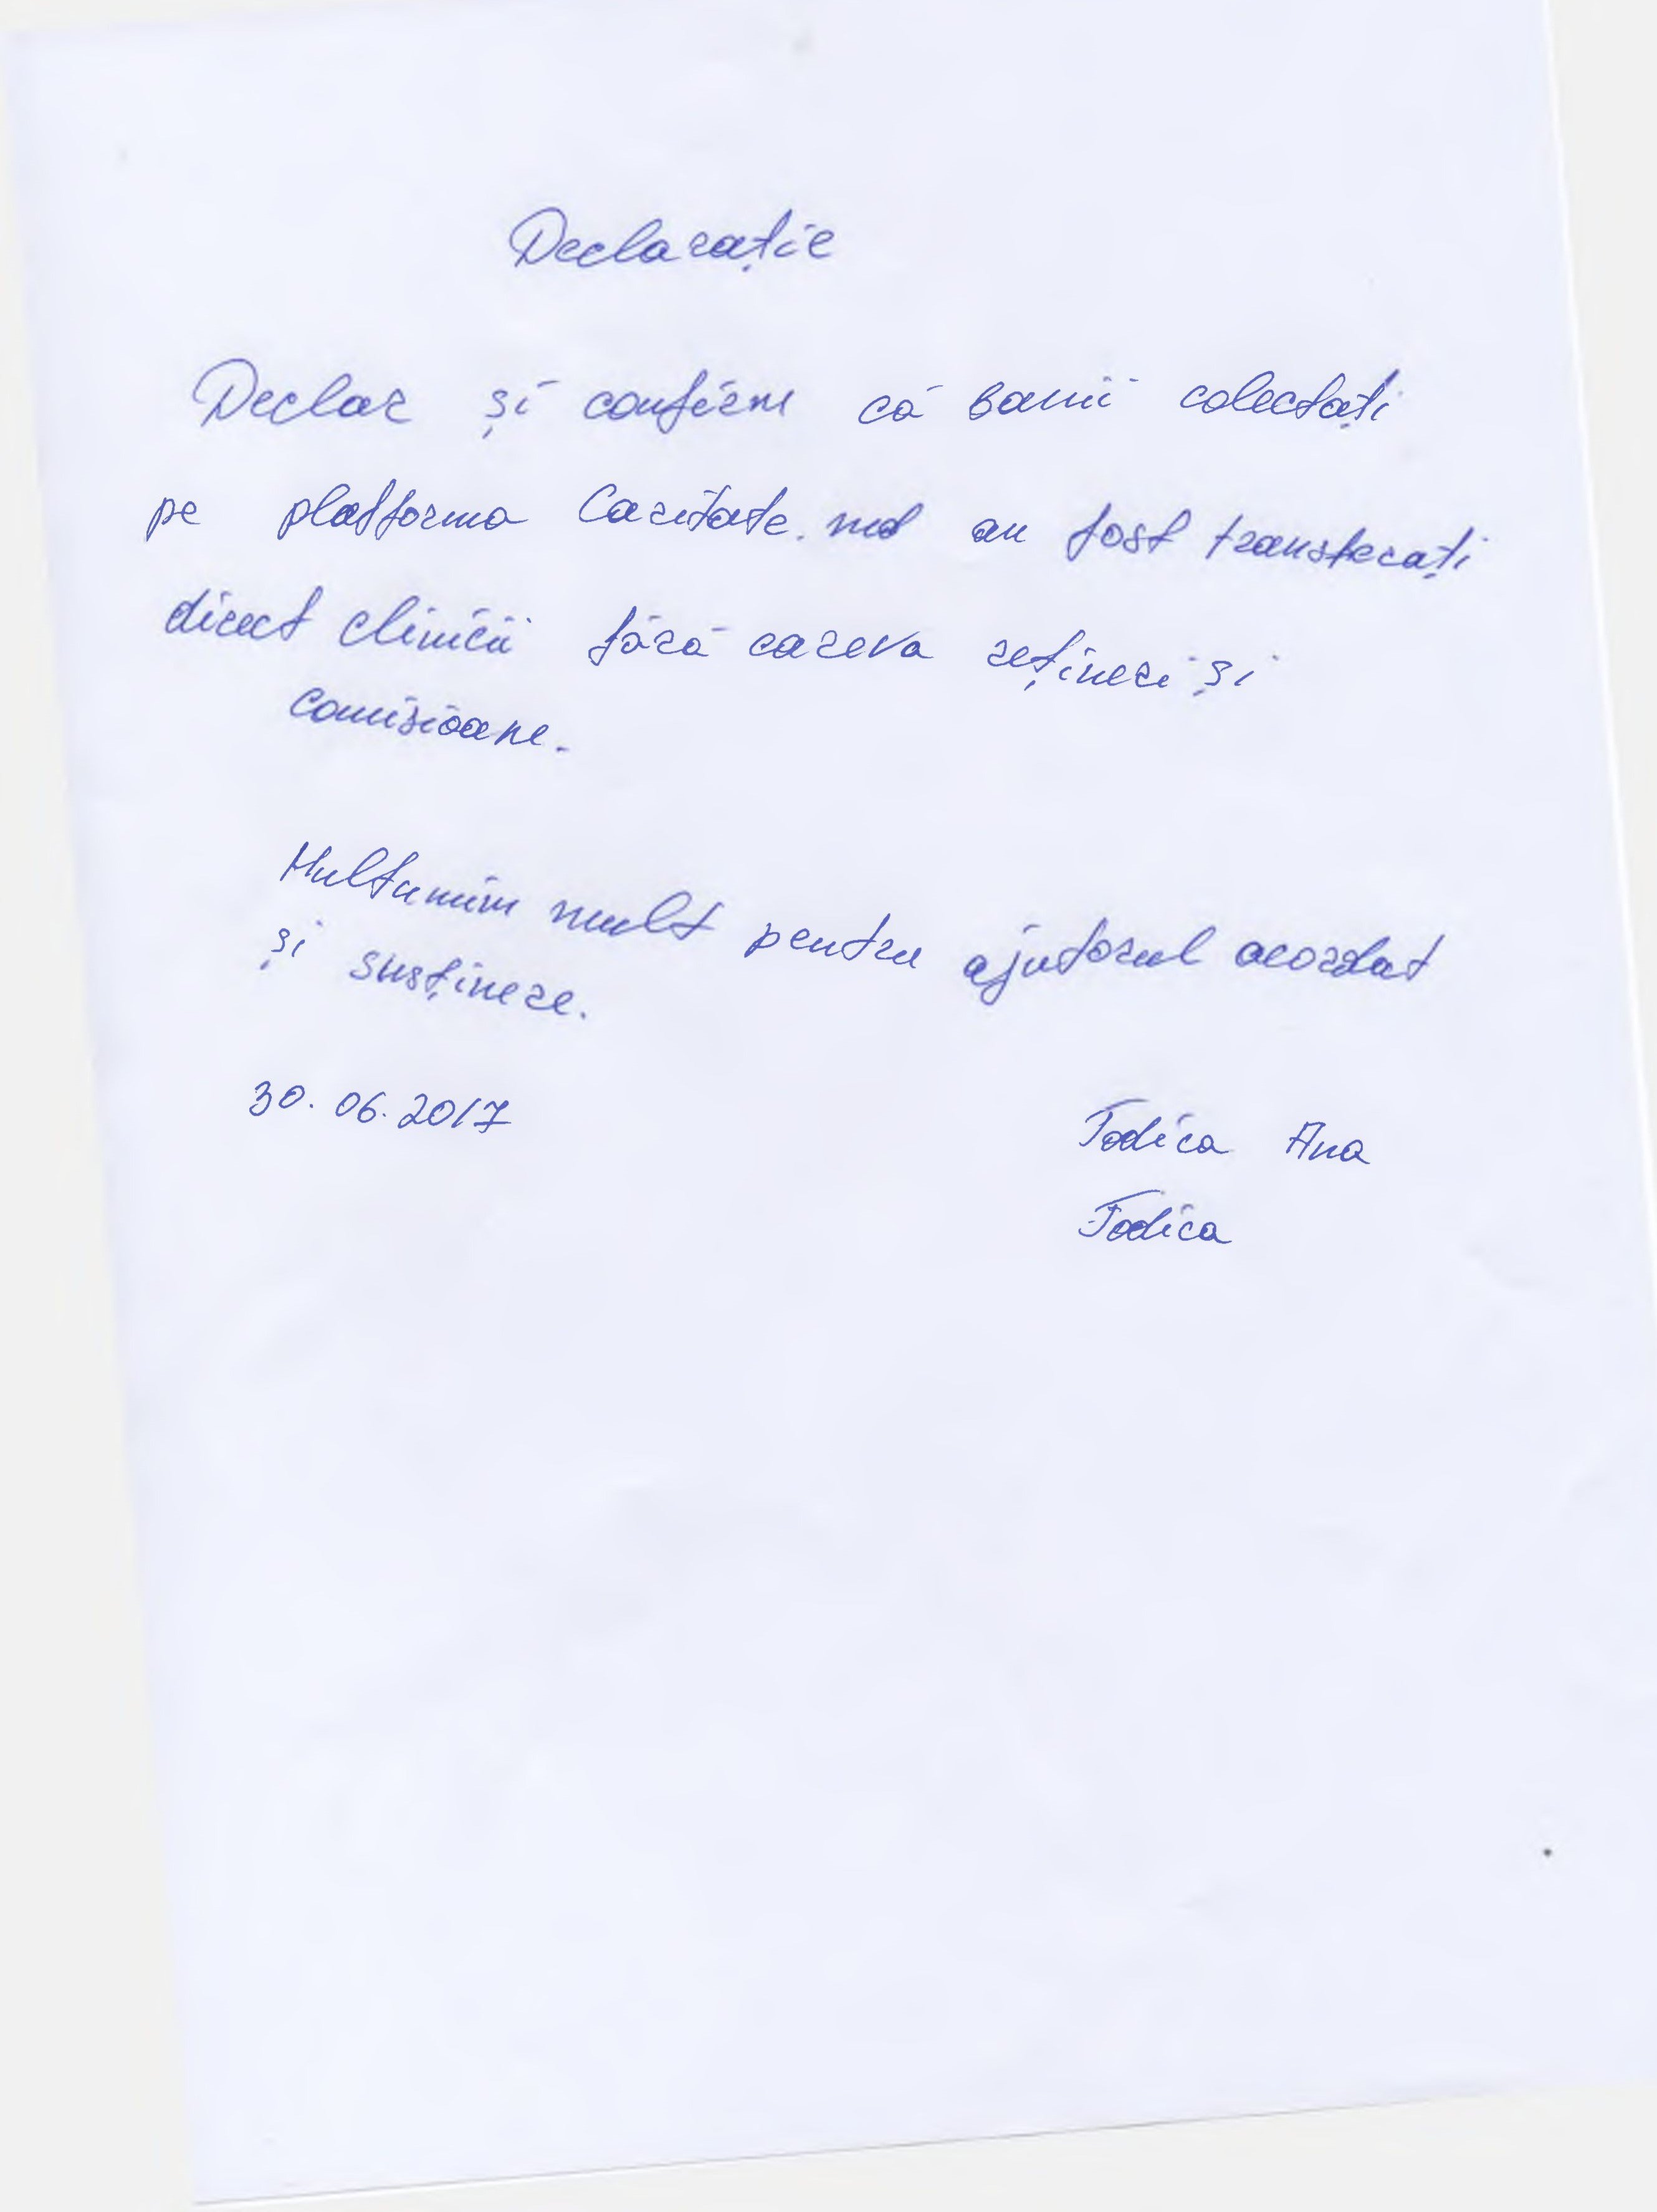 Declarație
Declar și confirm că banii colectați
pe platforma Caritate.md au fost transferați
direct clinicii fără careva rețineri și
comisioane.
Multumim mult pentru ajutorul acordat
și susținere.
30.06.2017
Todica Ana
Todica